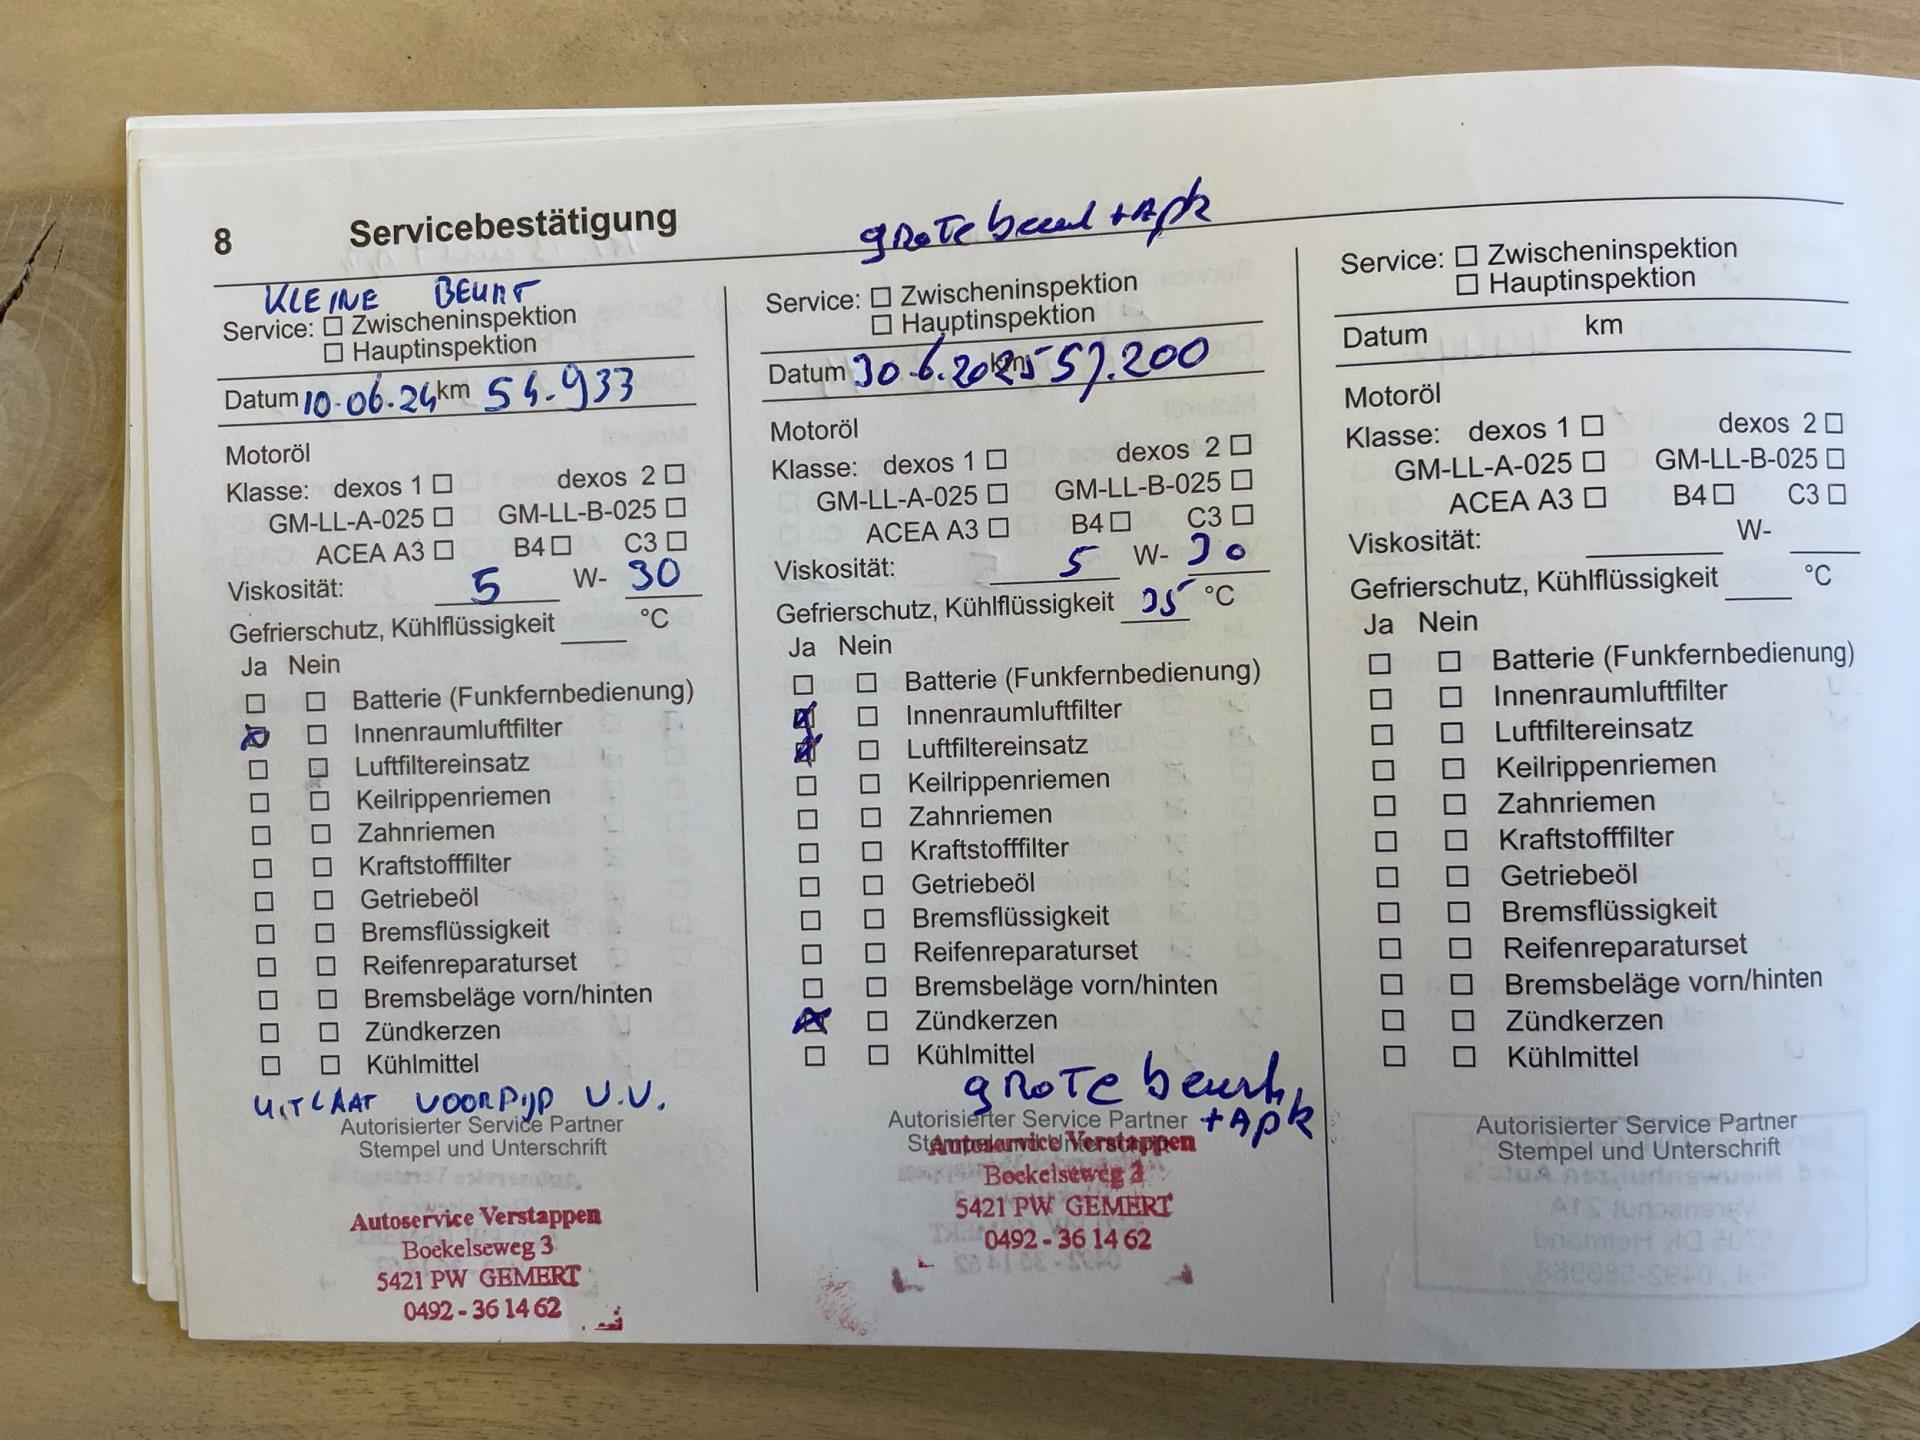 8 Servicebestätigung
KLEINE BEURT
Service: ☐ Zwischeninspektion
☐ Hauptinspektion
Datum 10-06-24 km 54.933
Motoröl
Klasse: dexos 1 ☐ dexos 2 ☐
GM-LL-A-025 ☐ GM-LL-B-025 ☐
ACEA A3 ☐ B4 ☐ C3 ☐
Viskosität: 5 W- 30
Gefrierschutz, Kühlflüssigkeit ____ °C
Ja Nein
☐ ☐ Batterie (Funkfernbedienung)
☒ ☐ Innenraumluftfilter
☐ ☐ Luftfiltereinsatz
☐ ☐ Keilrippenriemen
☐ ☐ Zahnriemen
☐ ☐ Kraftstofffilter
☐ ☐ Getriebeöl
☐ ☐ Bremsflüssigkeit
☐ ☐ Reifenreparaturset
☐ ☐ Bremsbeläge vorn/hinten
☐ ☐ Zündkerzen
☐ ☐ Kühlmittel
UITLAAT VOORPIJP V.V.
Autorisierter Service Partner
Stempel und Unterschrift
Autoservice Verstappen
Boekelseweg 3
5421 PW GEMERT
0492 - 36 14 62
grote beurt + Apk
Service: ☐ Zwischeninspektion
☐ Hauptinspektion
Datum 30-6-2025 km 57.200
Motoröl
Klasse: dexos 1 ☐ dexos 2 ☐
GM-LL-A-025 ☐ GM-LL-B-025 ☐
ACEA A3 ☐ B4 ☐ C3 ☐
Viskosität: 5 W- 30
Gefrierschutz, Kühlflüssigkeit 35 °C
Ja Nein
☐ ☐ Batterie (Funkfernbedienung)
☒ ☐ Innenraumluftfilter
☒ ☐ Luftfiltereinsatz
☐ ☐ Keilrippenriemen
☐ ☐ Zahnriemen
☐ ☐ Kraftstofffilter
☐ ☐ Getriebeöl
☐ ☐ Bremsflüssigkeit
☐ ☐ Reifenreparaturset
☐ ☐ Bremsbeläge vorn/hinten
☒ ☐ Zündkerzen
☐ ☐ Kühlmittel
grote beurt
+ Apk
Autorisierter Service Partner
Stempel und Unterschrift
Autoservice Verstappen
Boekelseweg 3
5421 PW GEMERT
0492 - 36 14 62
Service: ☐ Zwischeninspektion
☐ Hauptinspektion
Datum km
Motoröl
Klasse: dexos 1 ☐ dexos 2 ☐
GM-LL-A-025 ☐ GM-LL-B-025 ☐
ACEA A3 ☐ B4 ☐ C3 ☐
Viskosität: ____ W- ____
Gefrierschutz, Kühlflüssigkeit ____ °C
Ja Nein
☐ ☐ Batterie (Funkfernbedienung)
☐ ☐ Innenraumluftfilter
☐ ☐ Luftfiltereinsatz
☐ ☐ Keilrippenriemen
☐ ☐ Zahnriemen
☐ ☐ Kraftstofffilter
☐ ☐ Getriebeöl
☐ ☐ Bremsflüssigkeit
☐ ☐ Reifenreparaturset
☐ ☐ Bremsbeläge vorn/hinten
☐ ☐ Zündkerzen
☐ ☐ Kühlmittel
Autorisierter Service Partner
Stempel und Unterschrift